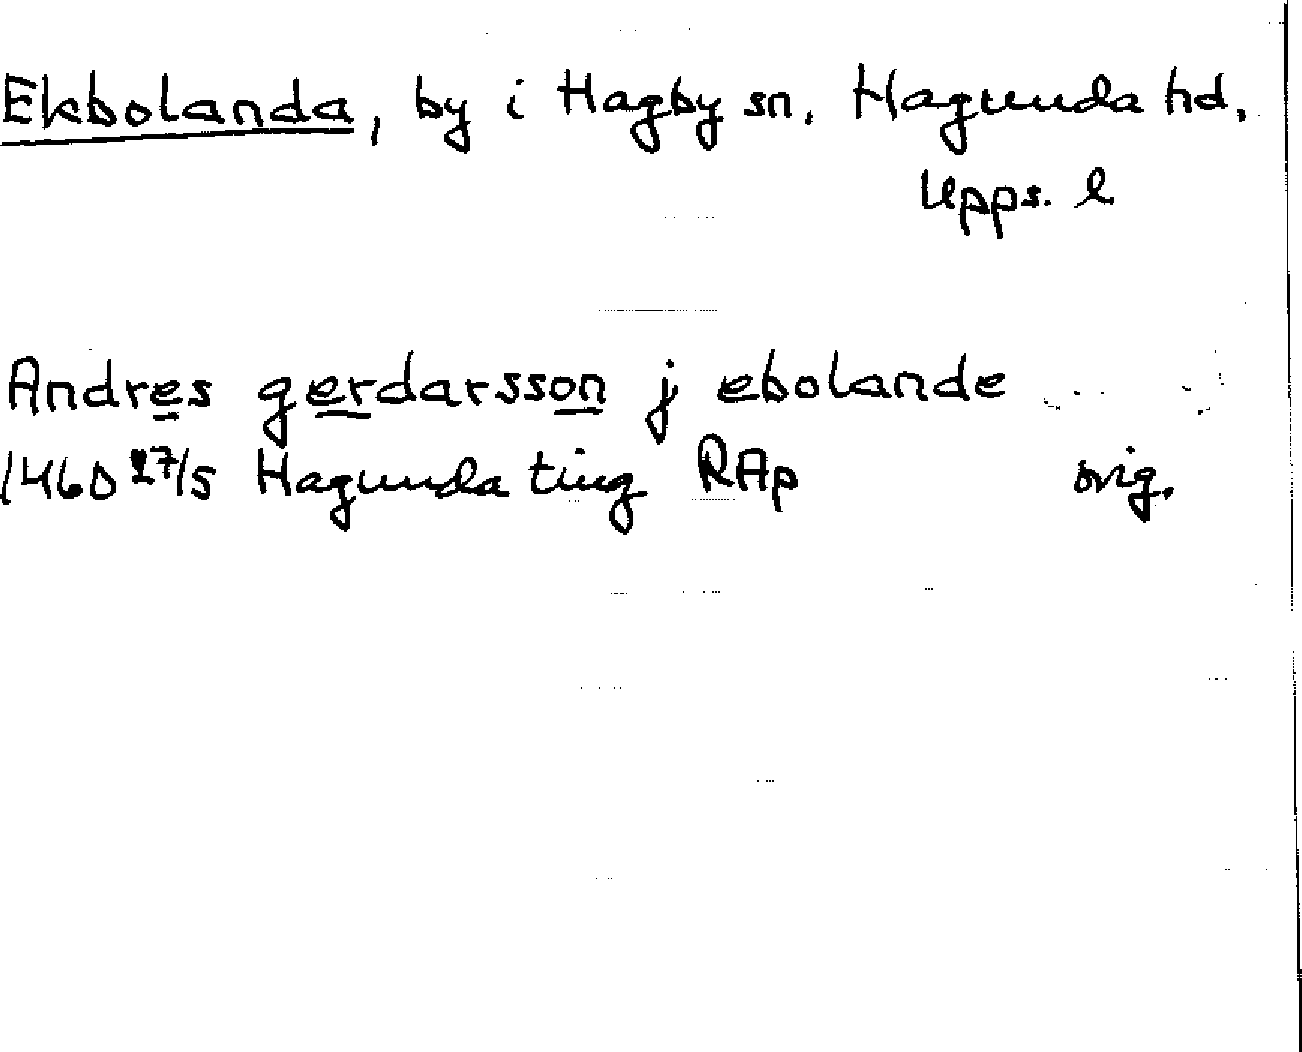 Ekbolanda, by i Hagby sn, Hagunda hd,
Upps. l
Andres gerdarsson j ebolande
1460 27/5 Hagunda ting RAp orig.